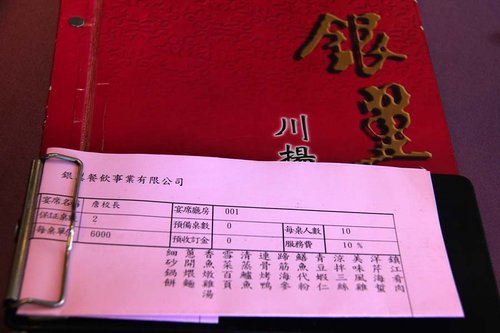 銀翼
川揚
銀翼餐飲事業有限公司
宴席名稱 詹校長 宴席廳房 001
保証桌數 2 預備桌數 0 每桌人數 10
每桌單價 6000 預收訂金 0 服務費 10 %
鎮江肴肉
洋芹海蜇
美味風雞
涼拌三絲
青豆蝦仁
鱔魚代粉
蹄筋海參
連骨烤鴨
清蒸鱸魚
雪菜百頁
香魚燉雞湯
蔥開煨麵
細砂鍋餅